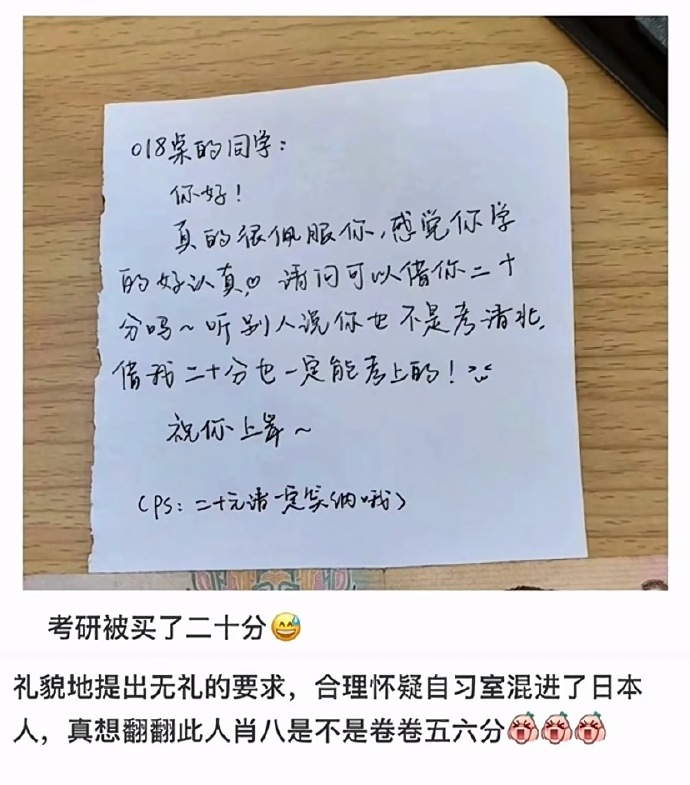 018桌的同学：
你好！
真的很佩服你，感觉你学
的好认真♡ 请问可以借你二十
分吗～听别人说你也不是考清北，
借我二十分也一定能考上的！
祝你上岸～
（PS：二十元请一定笑纳哦）
考研被买了二十分😅
礼貌地提出无礼的要求，合理怀疑自习室混进了日本
人，真想翻翻此人肖八是不是卷卷五六分